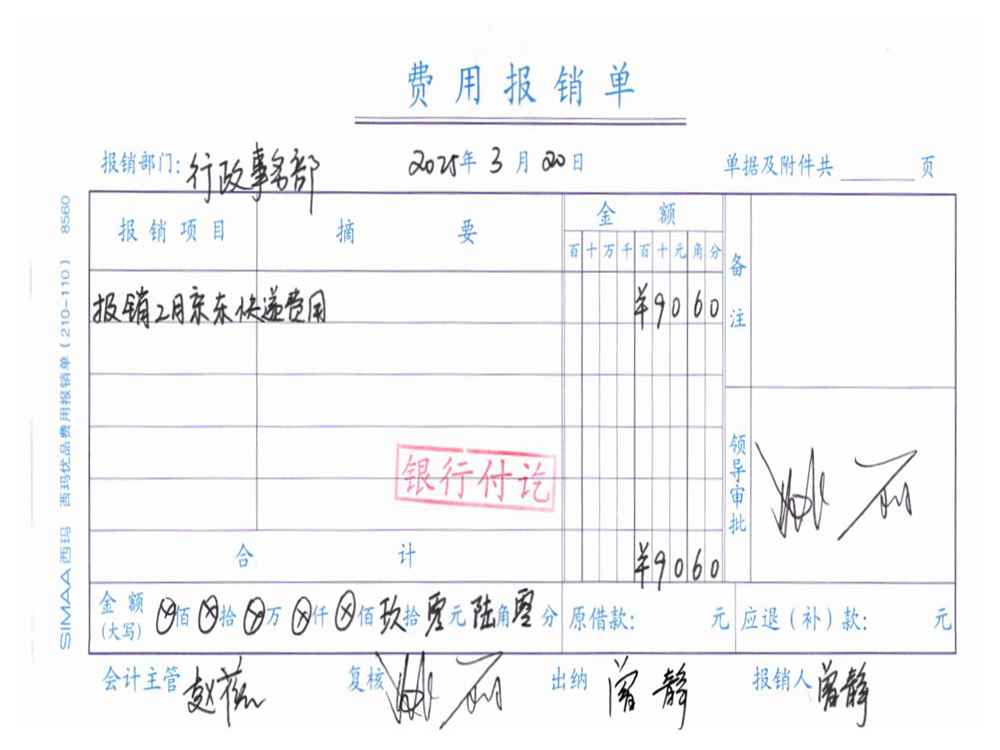 费用报销单
报销部门: 行政事务部 2025年 3月 20日 单据及附件共 页
报销项目 摘要 金额 备注
百十万千百十元角分
报销2月京东快递费用 ¥9060
银行付讫
领导审批
合计 ¥9060
金额(大写) ⊗佰⊗拾⊗万⊗仟⊗佰玖拾零元陆角零分 原借款: 元 应退(补)款: 元
会计主管 复核 出纳 曾静 报销人 曾静
SIMAA西玛 西玛优品费用报销单(210-110) 8560